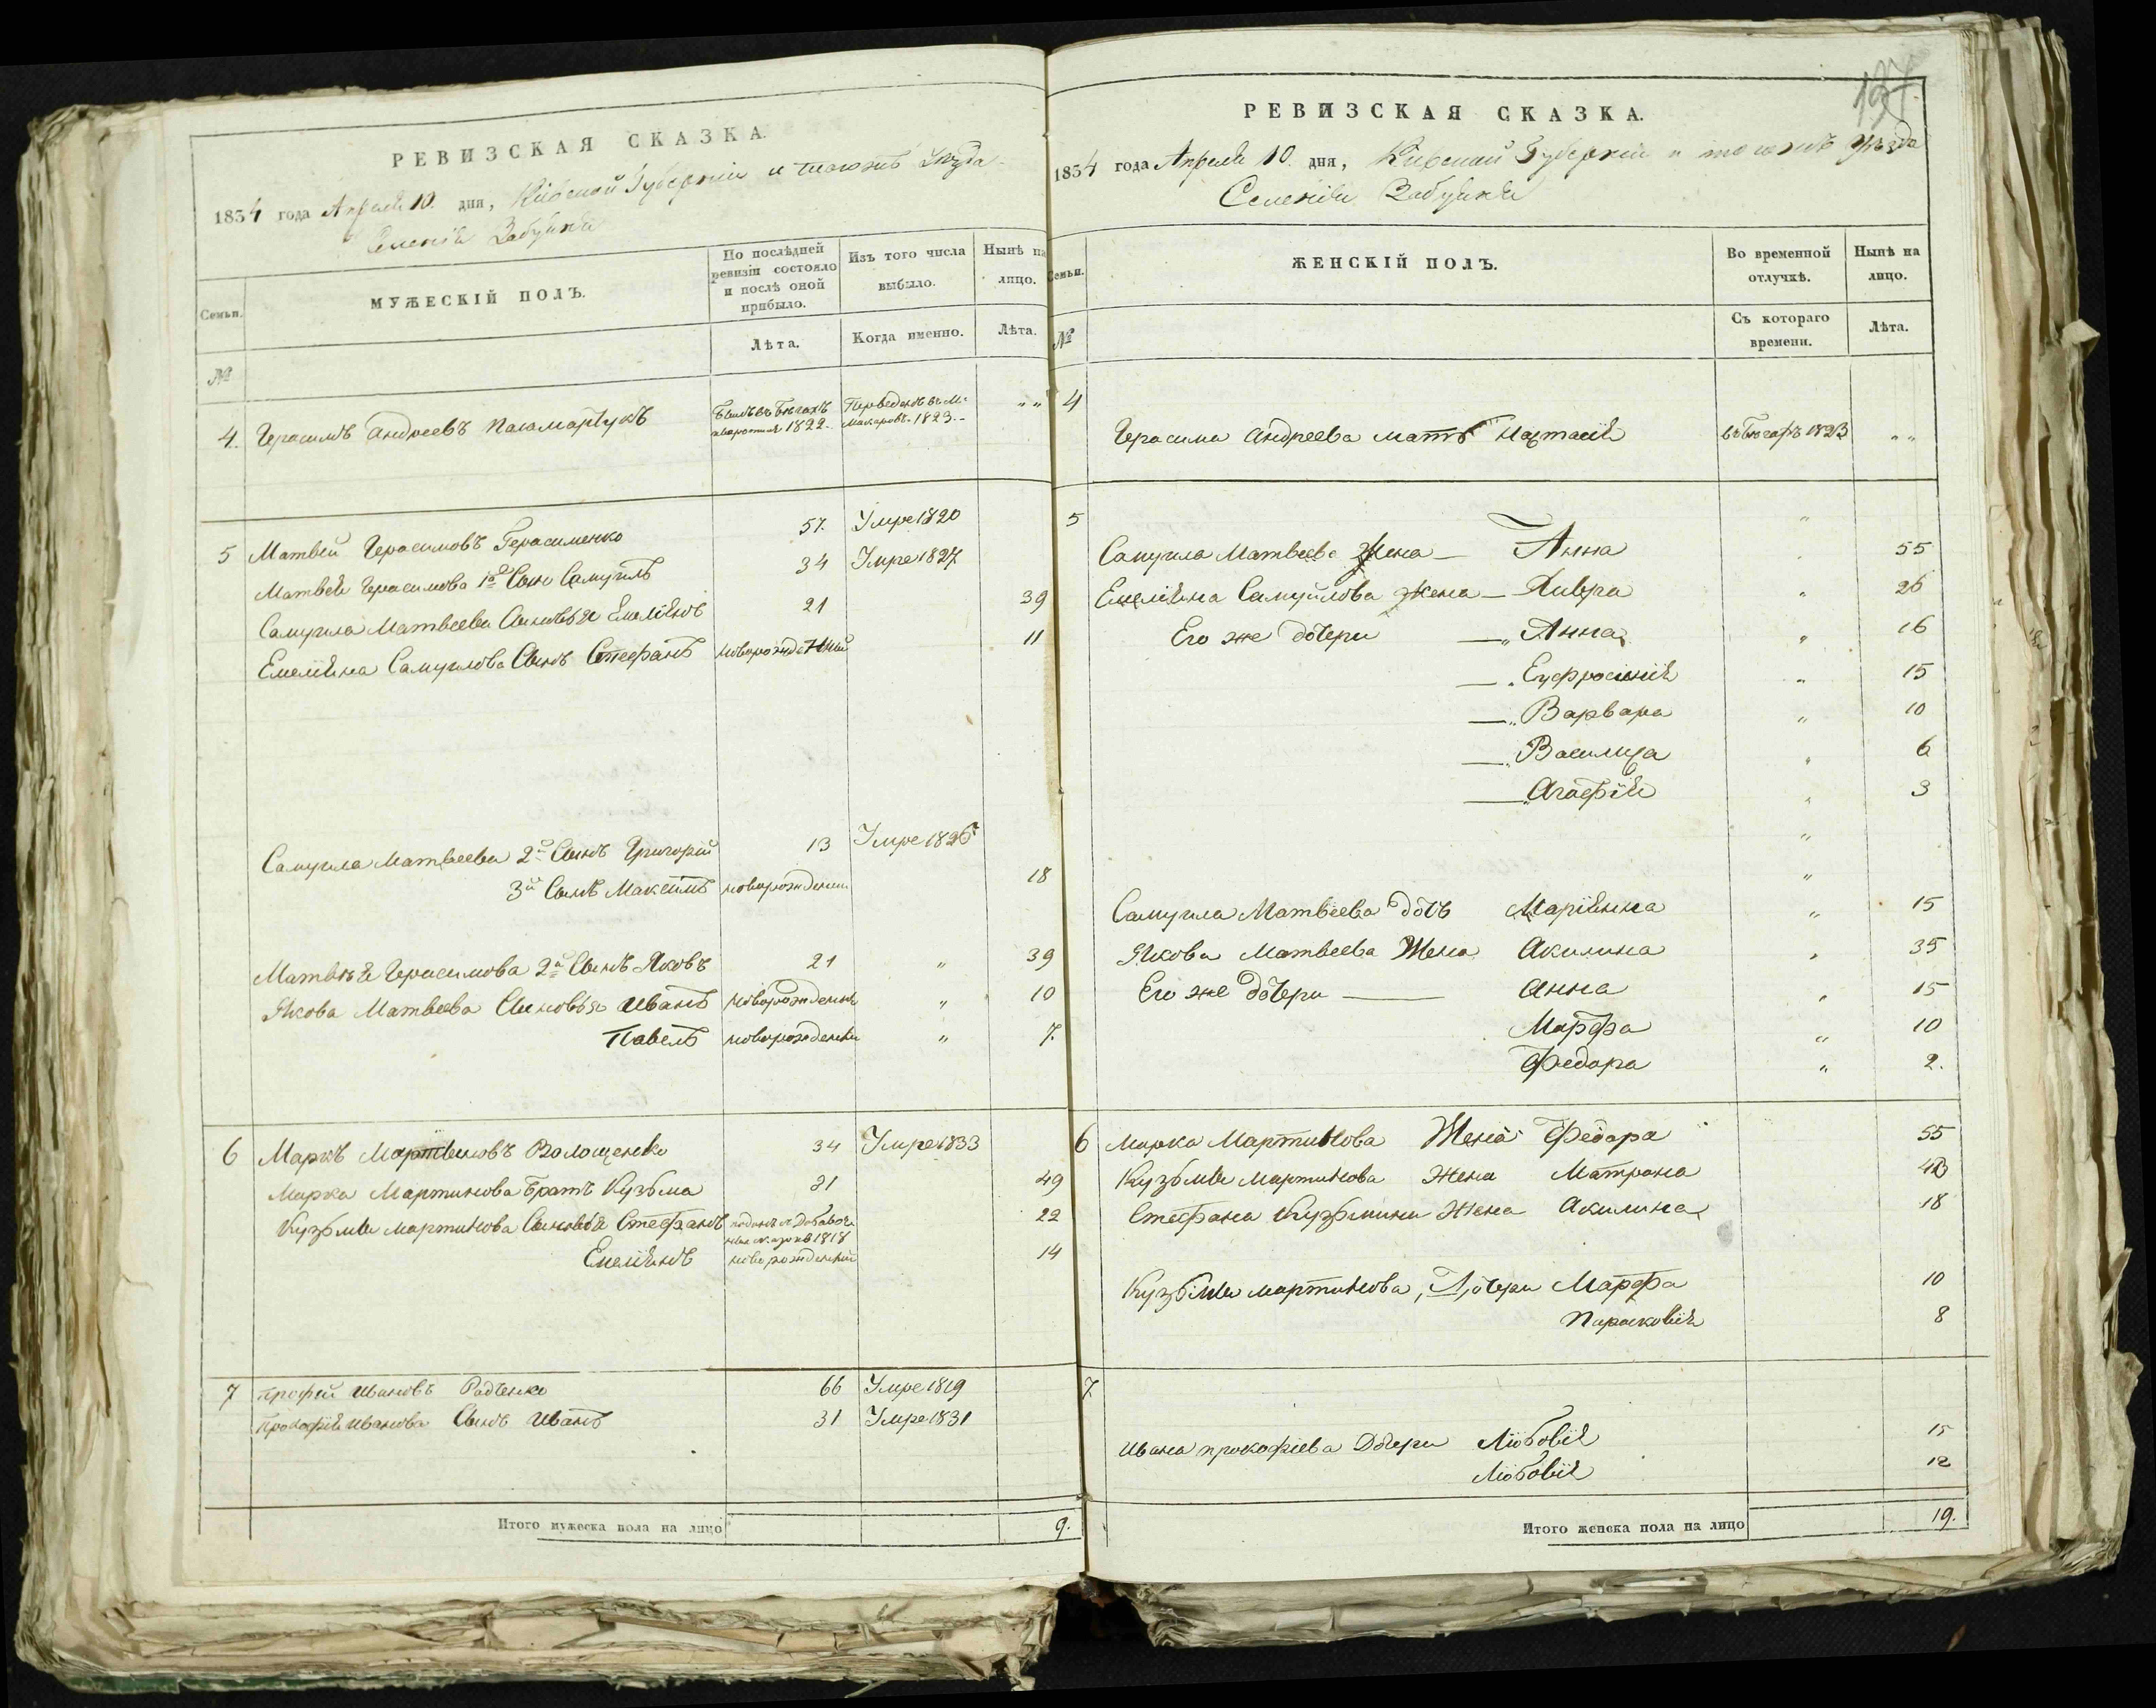 РЕВИЗСКАЯ СКАЗКА.
1834 года Апреля 10. дня, Кіевской Губерніи и тогожъ Уезда
Селенія Забуяня
Семьи.
МУЖЕСКІЙ ПОЛЪ.
По послѣдней ревизіи состояло и послѣ оной прибыло.
Изъ того числа выбыло.
Нынѣ на лицо.
№
Лѣта.
Когда именно.
Лѣта.
4. Герасимъ Андреевъ
Былъ въ бегахъ 1822
Переведенъ въ м. Макаровъ 1823
„ „
5 Матвей Герасимовъ Герасименко 57. Умре 1820
Матвея Герасимова 1й Сынъ Самуилъ 34 Умре 1827
Самуила Матвеева Сыновья Емелянъ 21 39
Емеліяна Самуилова Сынъ Стефанъ новорожденный 11
Самуила Матвеева 2й Сынъ Григорій 13 Умре 1826
3й Сынъ Максимъ новорожденный 18
Матвѣя Герасимова 2й Сынъ Яковъ 21 „ 39
Якова Матвеева Сыновья Иванъ новорожденны „ 10
Павелъ новорожденны „ 7.
6 Маркъ Мартиновъ Волощенко 34 Умре 1833
Марка Мартинова братъ Кузьма 31 49
Кузьмы Мартинова Сыновья Стефанъ поданъ по добавоч. сказке 1818 22
Емеліянъ новорожденный 14
7 Ивановъ Радченко 66 Умре 1819
Прокофія Иванова Сынъ Иванъ 31 Умре 1831
Итого мужеска пола на лицо 9.
127.
РЕВИЗСКАЯ СКАЗКА.
1834 года Апреля 10. дня, Кіевской Губерніи и тогожъ Уѣзда
Селенія Забуяня
Семьи.
ЖЕНСКІЙ ПОЛЪ.
Во временной отлучкѣ.
Нынѣ на лицо.
№
Съ котораго времени.
Лѣта.
4
Герасима Андреева мать Настасія въ бегахъ 1823 „ „
5 „
Самуила Матвеева Жена — Анна 55
Емеліяна Самуйлова жена — „ 26
Его же дочери —„ Анна „ 16
—„ Еуфросинія „ 15
—„ Варвара „ 10
—„ Василиса „ 6
—„ Агафія „ 3
„
„
Самуила Матвеева дочь Маріянна „ 15
Якова Матвеева Жена Акилина „ 35
Его же дочери — Анна „ 15
Марфа „ 10
Федора „ 2.
6 Марка Мартинова Жена Федора 55
Кузьмы Мартинова Жена Матрона
Стефана Кузьмина Жена Акилина 18
Кузьмы Мартинова, Дочери Марфа 10
Парасковія 8
7.
Ивана Прокофіева Дочери Любовія 15
Любовія 12
Итого женска пола на лицо 19.